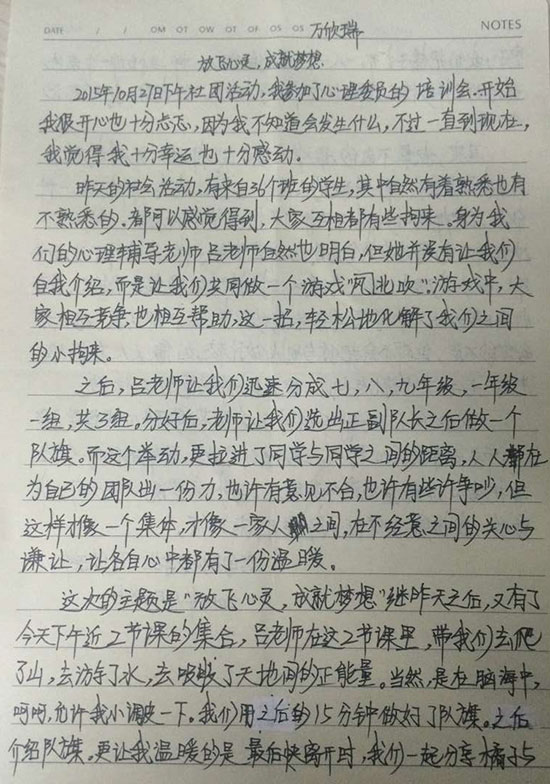 DATE / / OM OT OW OT OF OS OS 万欣瑞 NOTES
放飞心灵,成就梦想.
2015年10月27日下午社团活动,我参加了心理委员的培训会.开始
我很开心也十分忐忑,因为我不知道会发生什么,不过一直到现在,
我觉得我十分幸运也十分感动.
昨天的社会活动,有来自36个班的学生,其中自然有着熟悉也有
不熟悉的.都可以感觉得到,大家互相都有些拘束.身为我
们的心理辅导老师吕老师自然也明白,但她并没有让我们
自我介绍,而是让我们共同做一个游戏"风北吹".游戏中,大
家相互竞争也相互帮助,这一招,轻松地化解了我们之间
的小拘束.
之后,吕老师让我们迅速分成七,八,九年级,一年级
一组,共3组.分好后,老师让我们选出正副队长之后做一个
队旗。而这个举动,更拉进了同学与同学之间的距离,人人都在
为自己的团队出一份力,也许有意见不合,也许有些许争吵,但
这样才像一个集体,才像一家人之间,在不经意之间的关心与
谦让,让各自心中都有了一份温暖。
这次的主题是"放飞心灵,成就梦想"继昨天之后,又有了
今天下午近2节课的集合,吕老师在这2节课里,带我们去爬
了山,去游了水,去吸收了天地间的正能量。当然,是在脑海中,
呵呵,允许我小调皮一下。我们用之后的15分钟做好了队旗。之后
介绍队旗。更让我温暖的是最后快离开时,我们一起分享橘子与